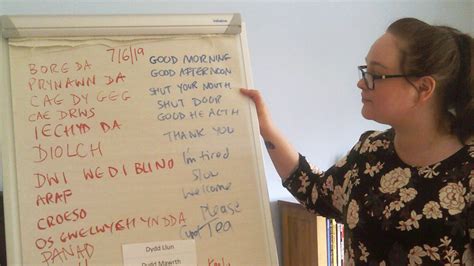 BORE DA 7/6/19 GOOD MORNING
PRYNAWN DA GOOD AFTERNOON
CAE DY GEG SHUT YOUR MOUTH
CAE DRWS SHUT DOOR
IECHYD DA GOOD HEALTH
DIOLCH THANK YOU
DWI WEDI BLINO I'm tired
ARAF Slow
CROESO Welcome
OS GWELWYCH YN DDA Please
PANAD Cup Tea
Dydd Llun
Dydd Mawrth